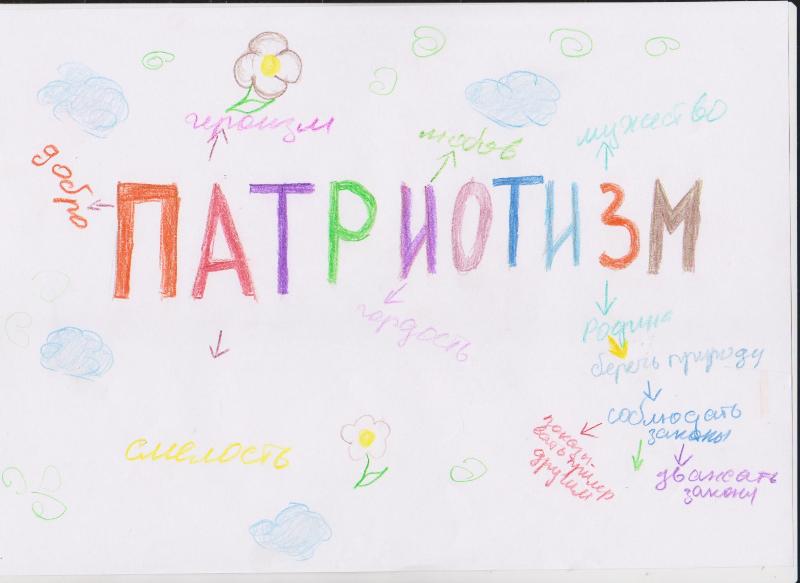 героизм
любовь
мужество
добро
ПАТРИОТИЗМ
гордость
Родина
беречь природу
соблюдать
законы
смелость
показы-
вать пример
другим
уважать
законы